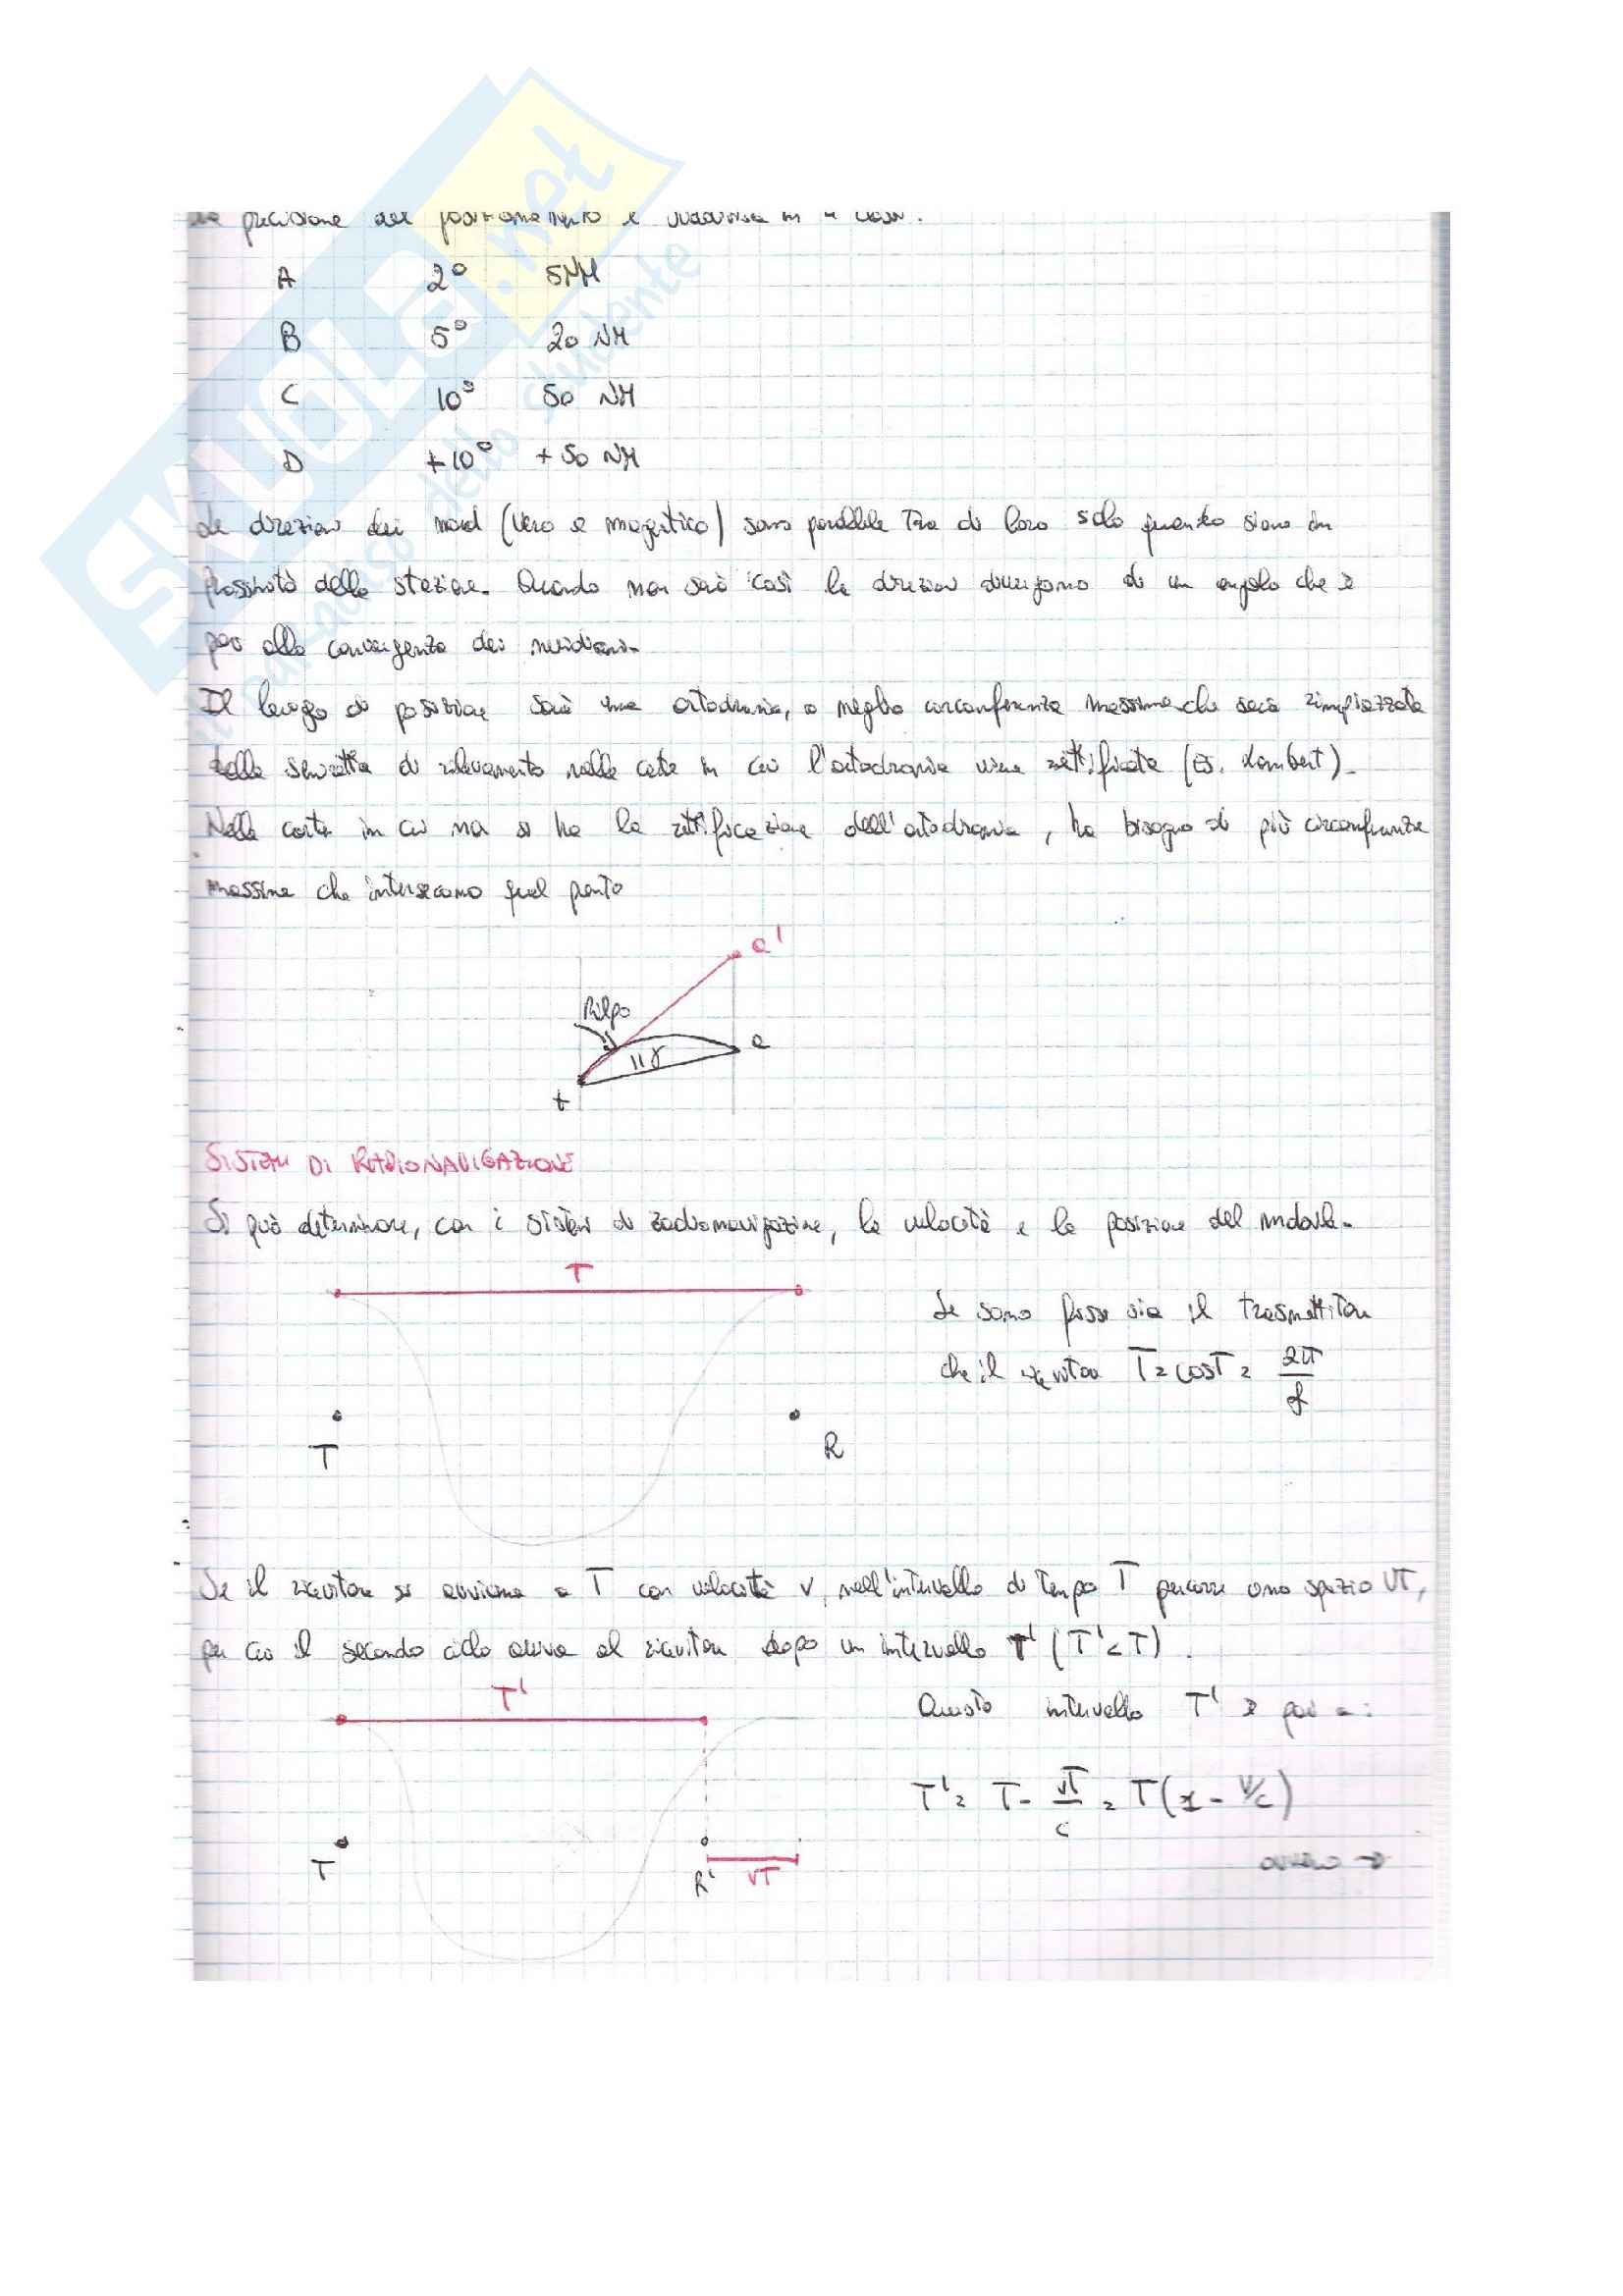 La precisione del posizionamento è suddivisa in 4 classi:
A 2° 5NM
B 5° 20 NM
C 10° 50 NM
D +10° +50 NM
Le direzioni dei nord (vero e magnetico) sono parallele tra di loro solo quando siamo in
prossimità della stazione. Quando non sarà così le direzioni divergono di un angolo che è
pari alla convergenza dei meridiani.
Il luogo di posizione sarà una ortodromia, o meglio circonferenza massima che sarà rimpiazzata
dalla semiretta di rilevamento nelle carte in cui l'ortodromia viene rettificata (Es. Lambert).
Nelle carte in cui non si ha la rettificazione dell'ortodromia, ho bisogno di più circonferenze
massime che intersecano quel punto
Q'
Rilpo
Q
t
SISTEMI DI RADIONAVIGAZIONE
Si può determinare, con i sistemi di radionavigazione, la velocità e la posizione del mobile.
T
Se sono fissi sia il trasmettitore
che il ricevitore T = cost = 2π/f
T R
Se il ricevitore si avvicina a T con velocità v, nell'intervallo di tempo T percorre uno spazio VT,
per cui il secondo ciclo arriva al ricevitore dopo un intervallo T' (T'<T).
T'
Questo intervallo T' è pari a:
T' = T - vT/c = T(1 - V/c)
T R' VT
ovvero →
SKUOLA.net